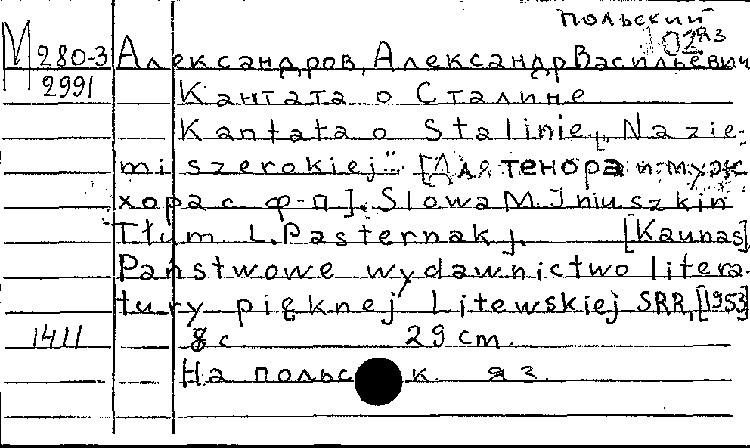 польский
102 яз
М 280-3 Александров, Александр Васильевич
2991 Кантата о Сталине
Kantata o Stalinie „Na zie-
mi szerokiej" [Для тенора и муж
хора с ф-п]. Slowa M. Iniuszkin
Tłum L. Pasternak]. [Kaunas]
Państwowe wydawnictwo litera-
tury pięknej Litewskiej SRR, [1953]
1411 8 с 29 cm.
На польск. яз.